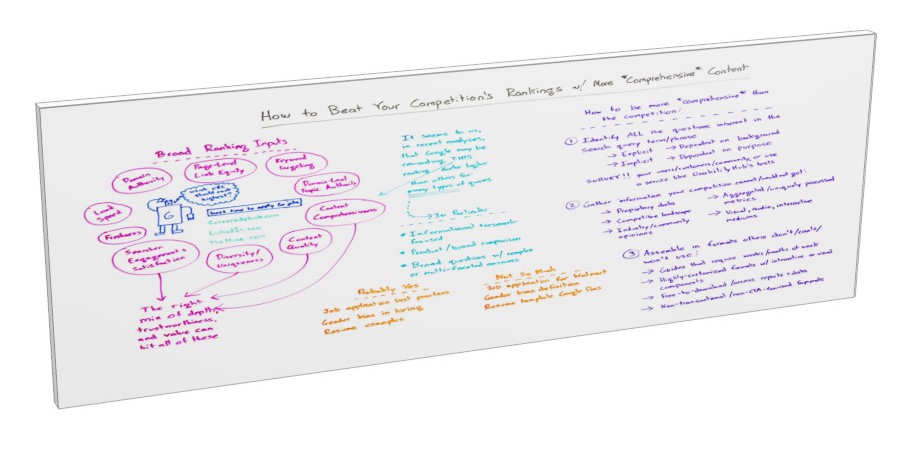 How to Beat Your Competition's Rankings w/ More *Comprehensive* Content
Broad Ranking Inputs
Domain
Authority
Page-Level
Link Equity
Keyword
Targeting
Domain-Level
Topic Authority
Load
Speed
What URL
should rank
highest?
G
best time to apply for jobs
Careersidekick.com
LinkedIn.com
TheMuse.com
Content
Comprehensiveness
Freshness
Searcher
Engagement &
Satisfaction
Diversity/
Uniqueness
Content
Quality
The right
mix of depth,
trustworthiness,
and value can
hit all of these
It seems to us,
in recent analyses,
that Google may be
rewarding THIS
ranking factor higher
than others for
many types of queries
In Particular
* Informational/research-
focused
* Product/brand comparison
* Broad questions w/ complex
or multi-faceted answers
Probably Yes
Job application best practices
Gender bias in hiring
Resume examples
Not So Much
Job application for Walmart
Gender bias definition
Resume template Google Docs
How to be more *comprehensive* than
the competition:
① Identify ALL the questions inherent in the
search query term/phrase
→ Explicit → Dependent on background
→ Implicit → Dependent on purpose
SURVEY!! your users/customers/community, or use
a service like UsabilityHub's tests
② Gather information your competition cannot/would not get:
→ Proprietary data
→ Competitive landscape
→ Industry/community
opinions
→ Aggregated/uniquely processed
metrics
→ Visual, audio, interactive
mediums
③ Assemble in formats others don't/can't/
won't use:
→ Guides that require weeks/months of work
→ Highly-customized formats w/ interactive or visual
components
→ Free-to-download/access reports + data
→ Non-transactional/non-CTA-focused formats